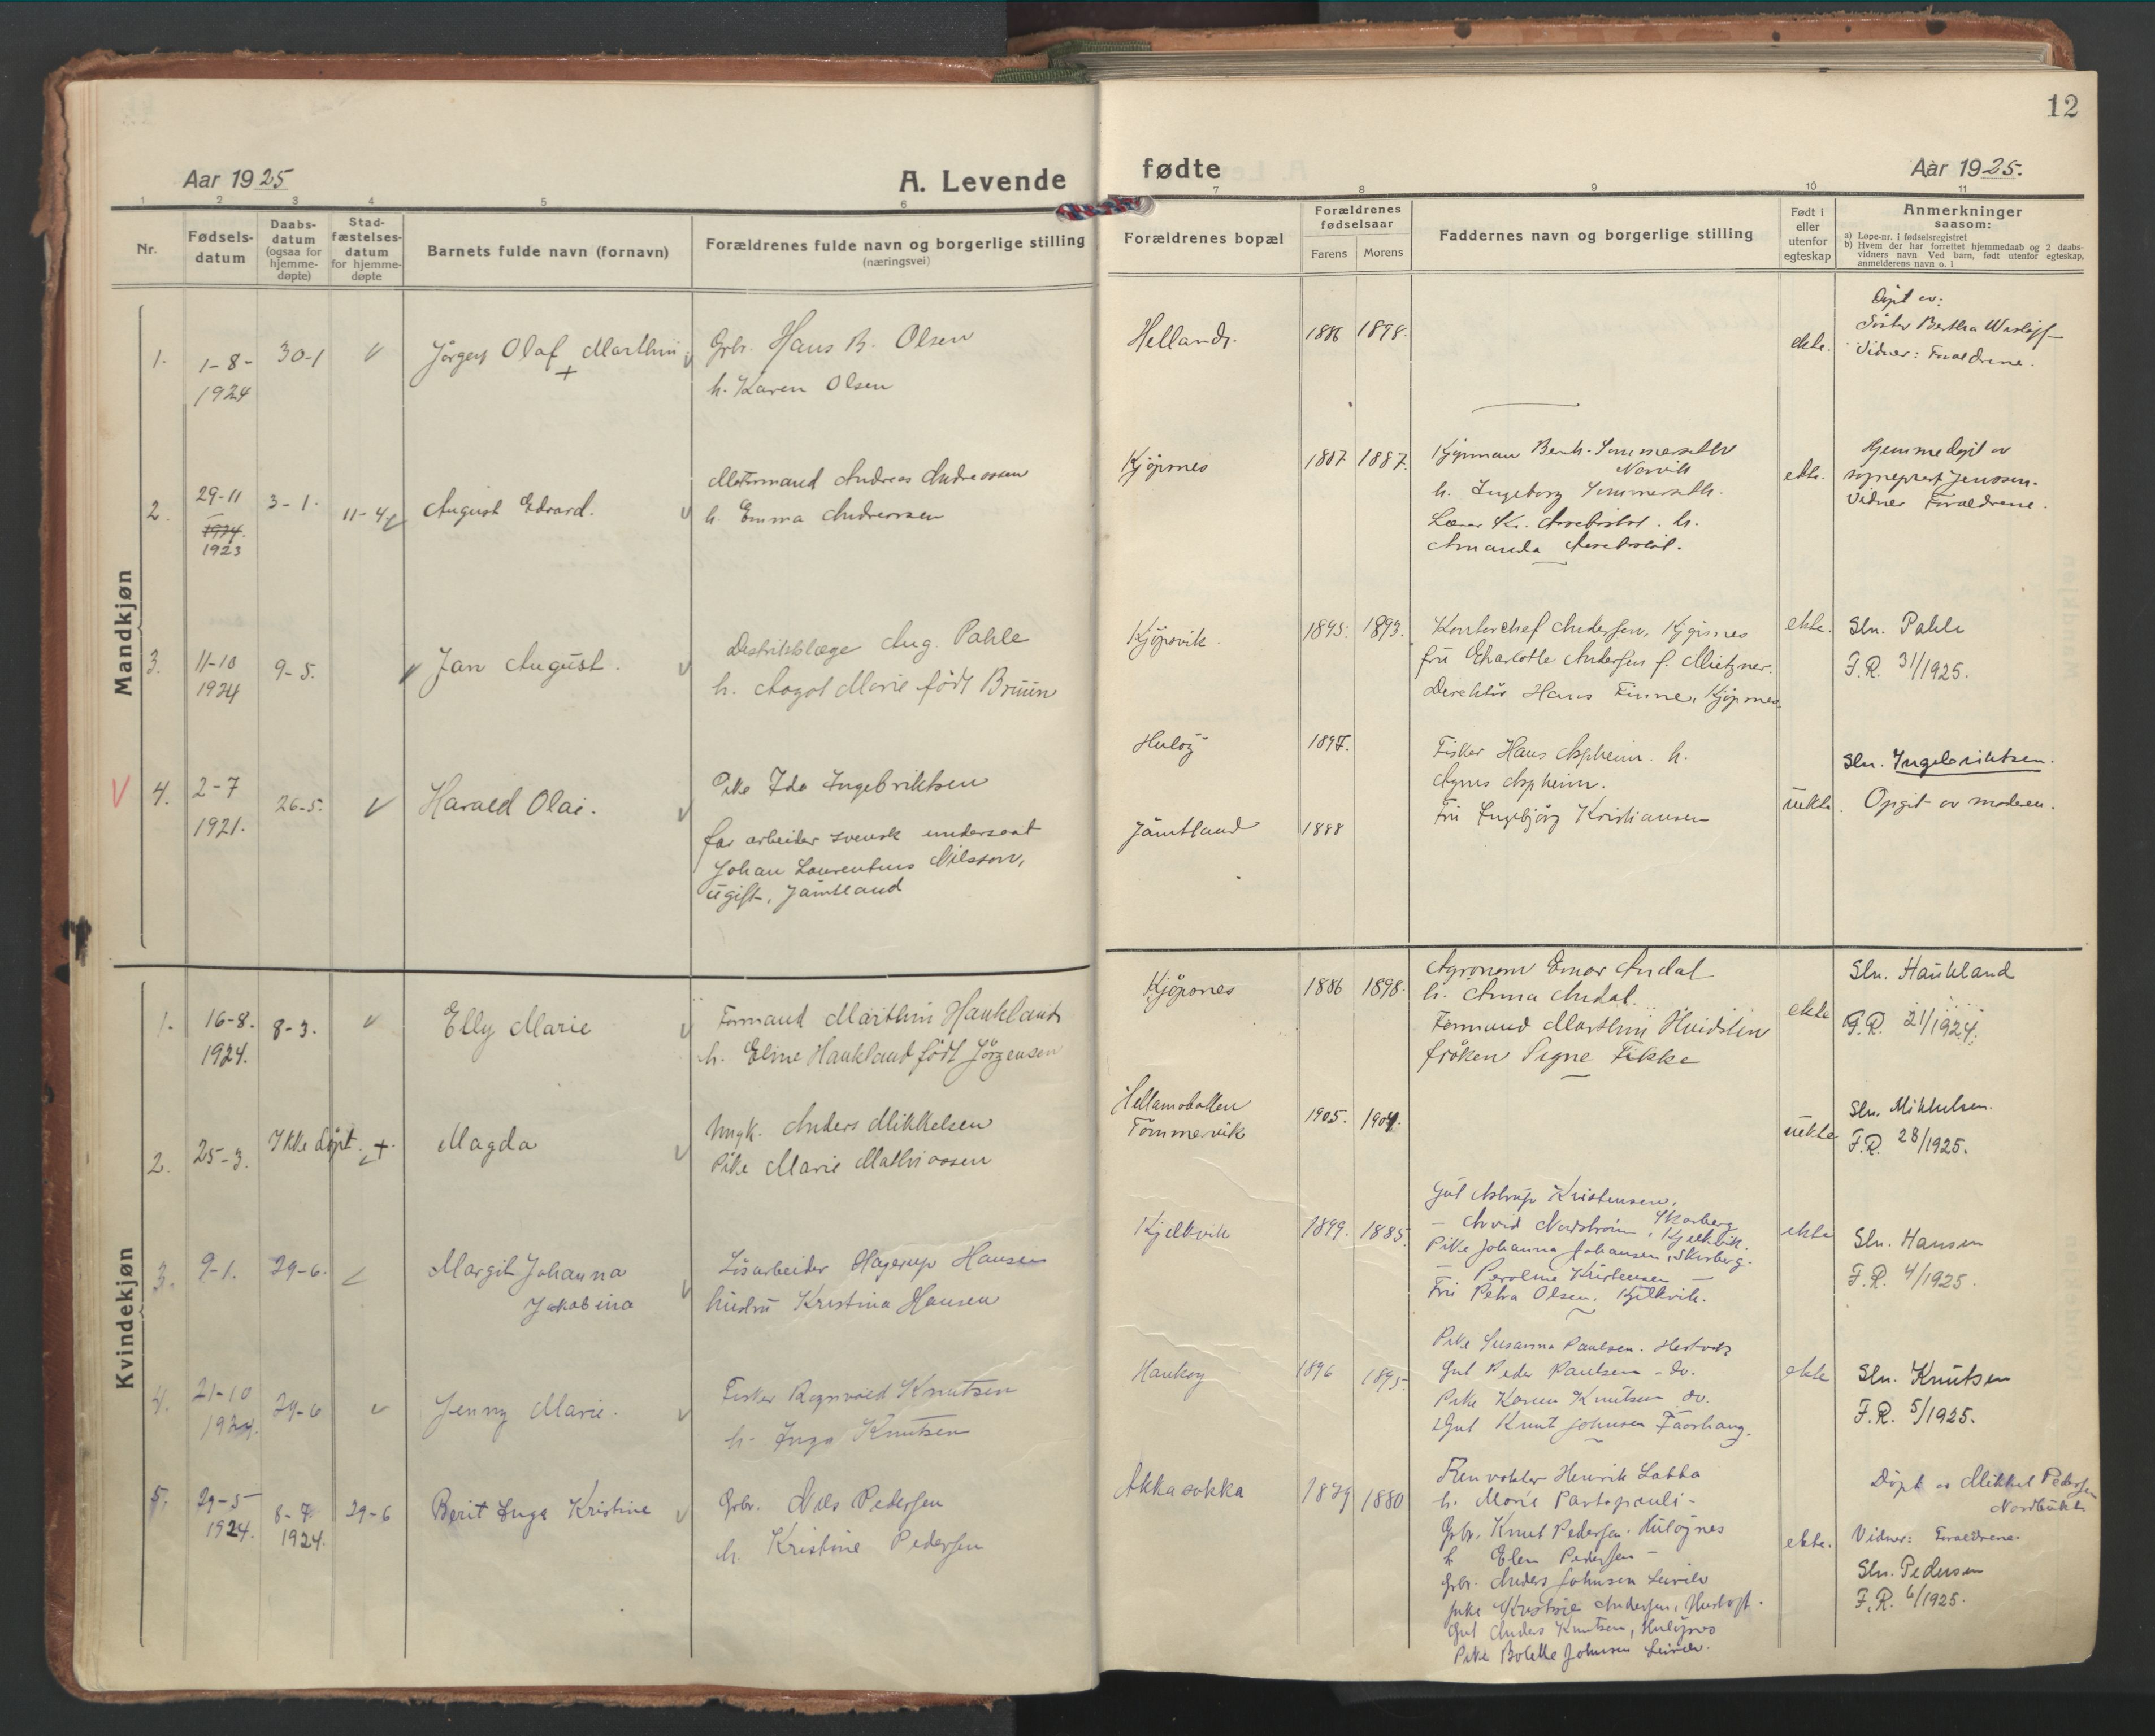 12
Aar 1925
A. Levende
fødte
Aar 1925.
1 2 3 4 5 6 7 8 9 10 11
Nr.
Fødsels-
datum
Daabs-
datum
(ogsaa for
hjemme-
døpte)
Stad-
fæstelses-
datum
for hjemme-
døpte
Barnets fulde navn (fornavn)
Forældrenes fulde navn og borgerlige stilling
(næringsvei)
Forældrenes bopæl
Forældrenes
fødselsaar
Farens Morens
Faddernes navn og borgerlige stilling
Født i
eller
utenfor
egteskap
Anmerkninger
saasom:
a) Løpe-nr. i fødselsregistret
b) Hvem der har forrettet hjemmedaab og 2 daabs-
vidners navn Ved barn, født utenfor egteskap,
anmelderens navn o. l
Mandkjøn
1.
1-8-
1924
30-1
Jørgen Olaf Marthin
Gbr. Hans B. Olsen
h. Karen Olsen
Helland
1886 1898.
ekte.
Døpt av:
Søster Bertha
Vidner: Foræaldrene.
2.
29-11
1924.
1923
3-1.
11-4
August Edvard.
Motormand Andreas Andreassen
h. Emma Andreassen
Kjøpsnes
1887 1887.
Kjøpman Sommerseth
Narvik
h. Ingeborg Sommerseth.
h.
Amanda
ekte.
Hjemmedøpt av
sogneprest Jenssen.
Vidner Foraldrene.
3.
11-10
1924
9-5.
Jan August.
Distriktslæge Aug. Pahle
h. Aagot Marie født Bruun
Kjøpsvik.
1895. 1893.
Kontorchef Andersen, Kjøpsnes
fru Charlotte Andersen f. Mietzner.
Direktør Hans Finne, Kjøpsnes
ekte.
Sln. Pahle
F.R. 31/1925.
4.
2-7
1921.
26-5.
Harald Olai.
Pike Ida Ingebriktsen
far arbeider svensk undersaat
Johan Laurentius Nilsson,
ugift, Jämtland
Huløy
1897.
Jämtland
1888
Fisker Hans Aspheim. h.
Agnes Aspheim.
Fru Ingebjørg Kristiansen
uekte.
Sln. Ingebriktsen.
Opgit av moderen.
Kvindekjøn
1.
16-8.
1924.
8-3.
Elly Marie
Formand Marthin Haukland
h. Eline Haukland født Jørgensen
Kjøpsnes
1886 1898.
Agronom Einar Andal
h. Anna Andal.
Formand Marthin Hundstin
frøken Signe Fikke
ekte
Sln. Haukland
F.R. 21/1924.
2.
25-3.
Ikke døpt.
Magda
Ungk. Anders Mikkelsen
Pike Marie Mathiassen
Hellamobotten
Tømmervik
1905. 1904.
uekte
Sln. Mikkelsen.
F.R. 28/1925.
3.
9-1.
29-6.
Margit Johanna
Jakobina
Løsarbeider Hagerup Hansen
hustru Kristina Hansen
Kjelkvik
1899. 1885.
Gut Astrup Kristensen,
Skarberg
- Arvid Nordstrøm, Kjelkvik.
Pike Johanna Johansen, Skarberg.
- Peroline Kristensen -
Fru Petra Olsen. Kjelkvik.
ekte
Sln. Hansen
F.R. 4/1925.
4.
21-10
1924.
29-6
Jenny Marie.
Fisker Ragnvald Knutsen
h. Inga Knutsen
Haukøy
1896 1895.
Pike Susanna Paulsen.
Gut Peder Paulsen - do.
Pike Karen Knutsen do.
Gut Knut Johnsen
ekte
Sln. Knutsen
F.R. 5/1925.
5.
29-5
1924.
8-7
1924.
29-6
Berit Inga Kristine
Gbr. Nils Pedersen
h. Kristine Pedersen
Akkasokka
1879 1880
Henrik Labba
h. Marie Partapauli -
Gbr. Knut Pedersen. Huløynes
h Elen Pedersen -
Gbr. Anders Johnsen
pike Kristine Andersen,
Gut Anders Knutsen, Huløynes
Pike Bolette Johnsen
ekte.
Døpt av Mikkel Pedersen
Nordbukt
Vidner: Foraldrene.
Sln. Pedersen
F.R. 6/1925.